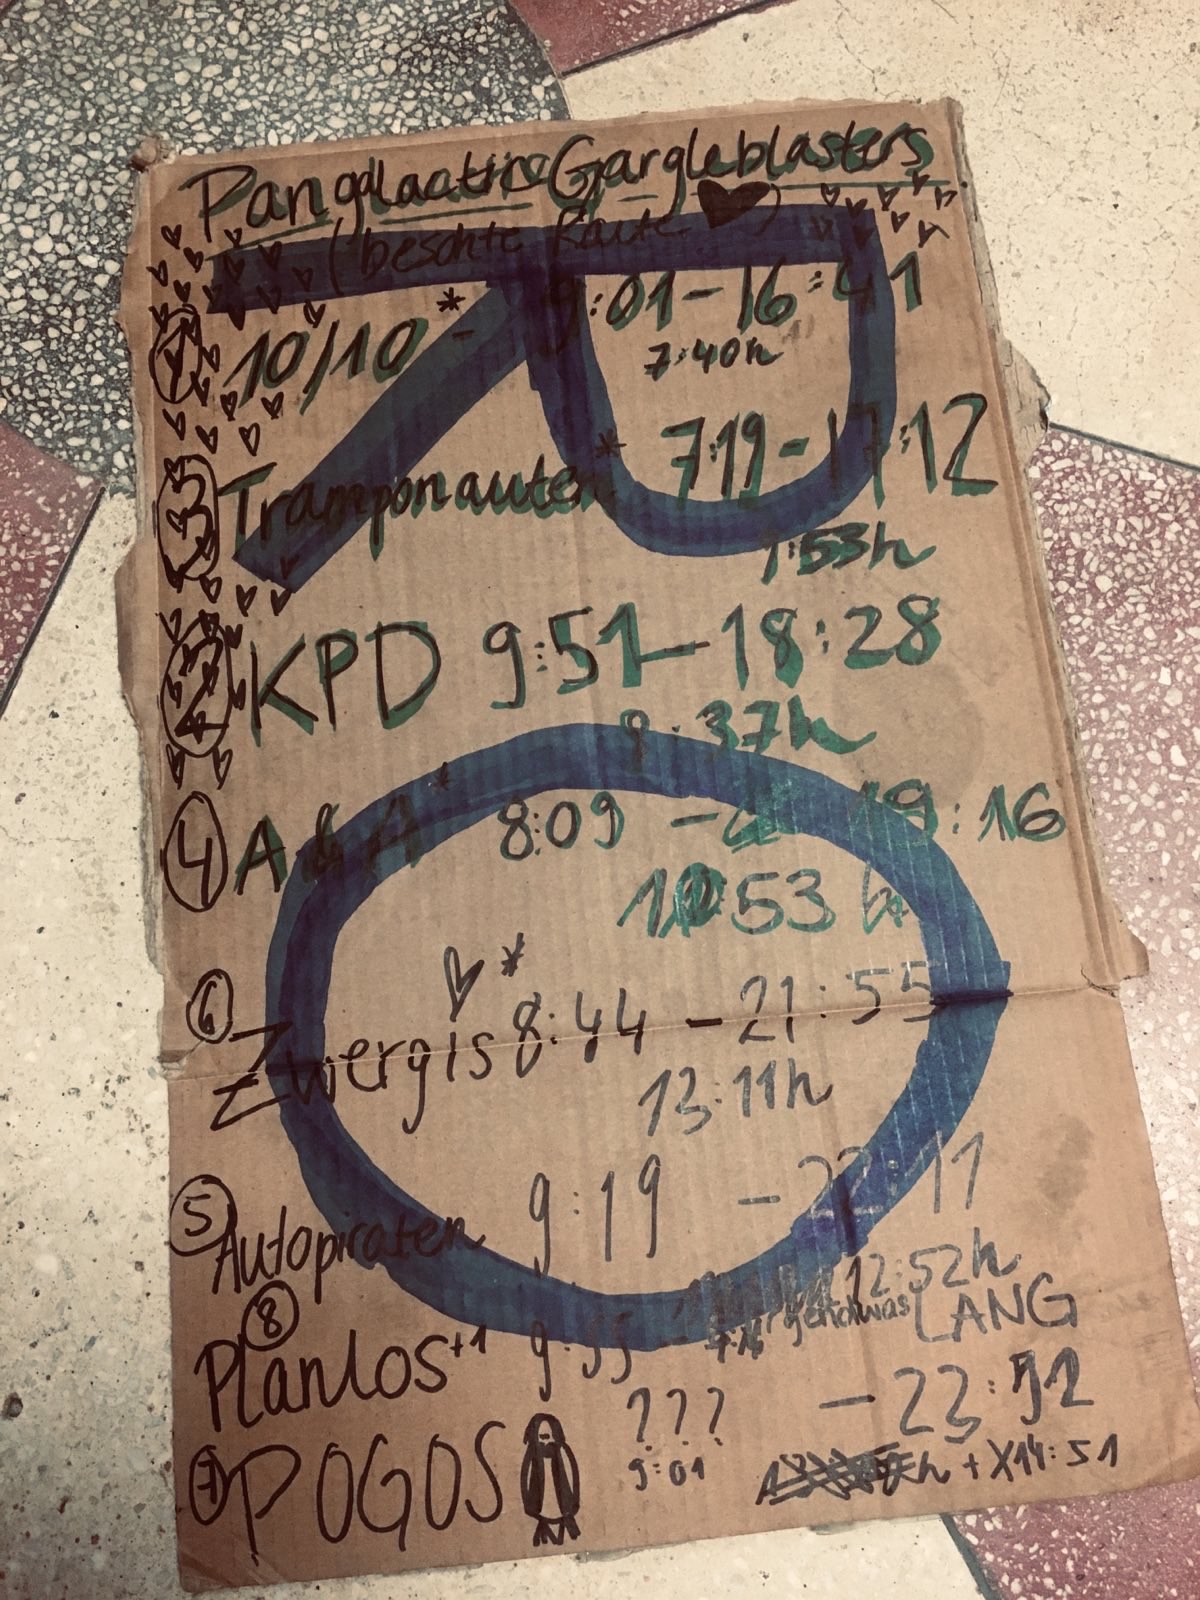 Pangalactic Gargleblasters
(beschte Raute ♥)
1 10/10* - 9:01 - 16:41
7:40h
3 Tramponauten* 7:19 - 17:12
:53h
2 KPD 9:51 - 18:28
8:37h
4 A & A* 8:09 - 19:16
53 h
6 Zwergis ♡* 8:44 - 21:55
13:11h
5 Autopiraten 9:19 - 22:11
12:52h
8 Planlos+1 9:55 - irgendwas LANG
7 POGOS ??? - 23:52
9:01 h + X14:51